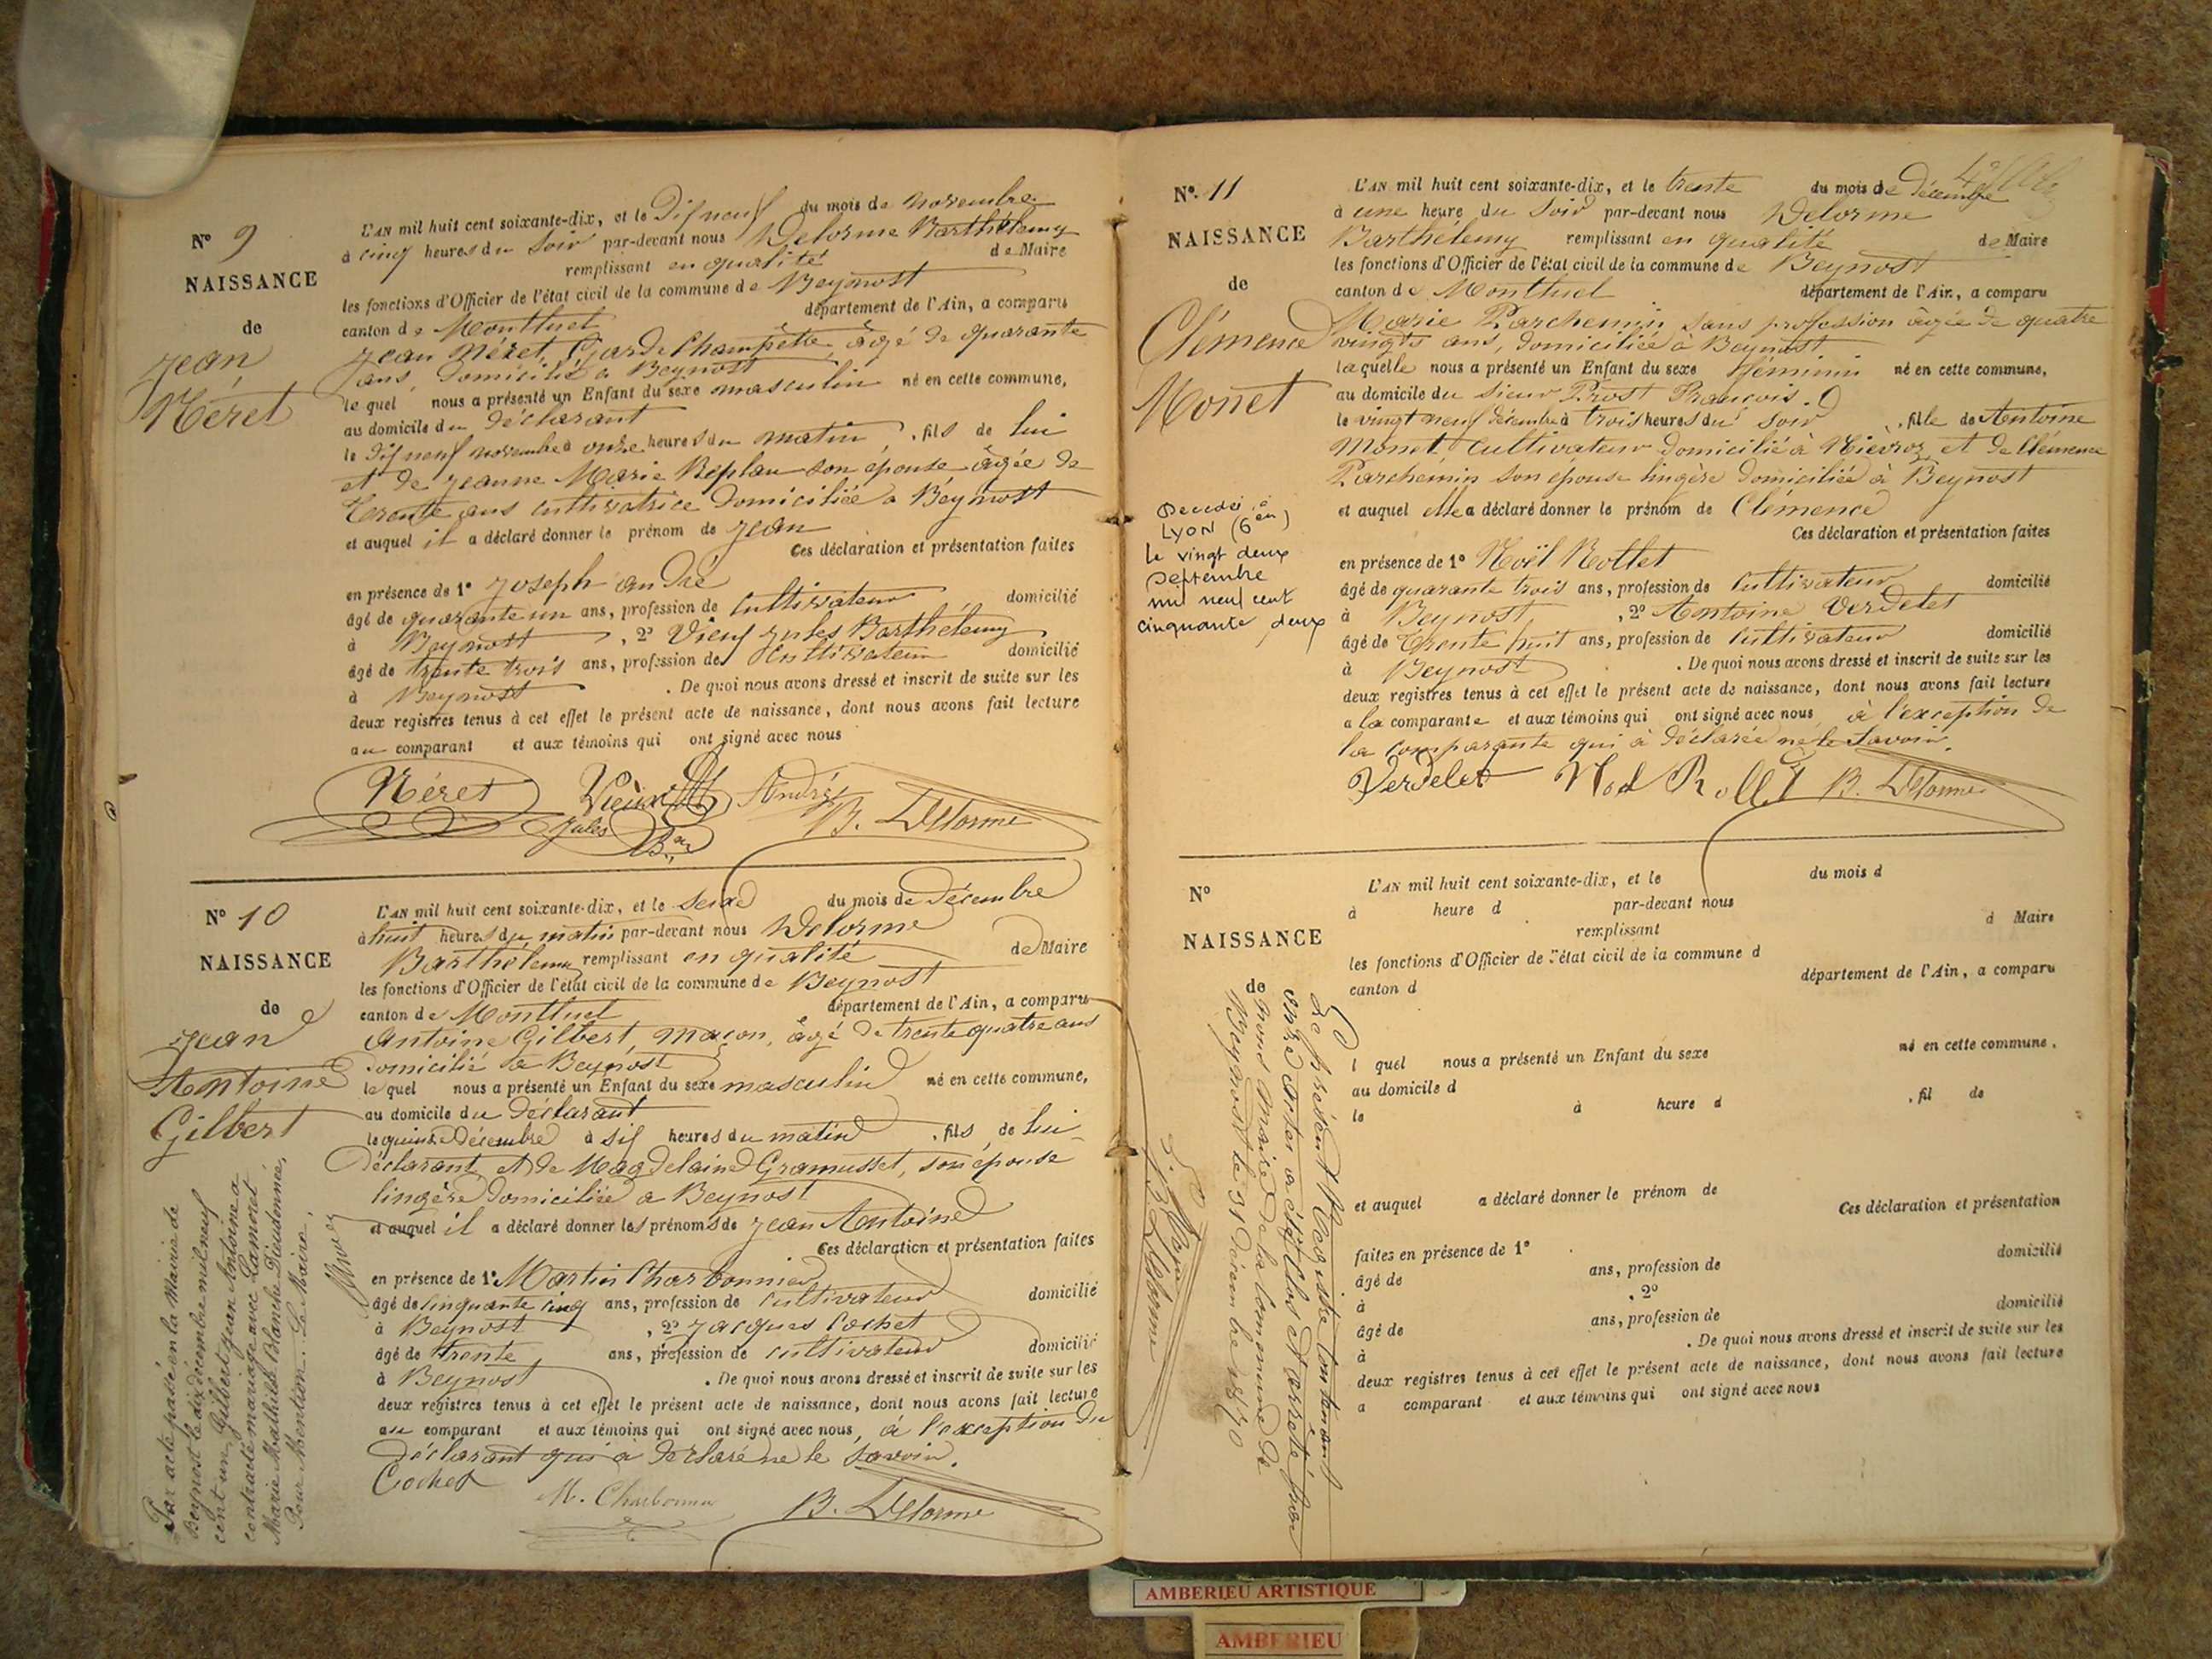 N° 9
NAISSANCE
de
Jean
Néret
L'AN mil huit cent soixante-dix, et le Dix neuf du mois de novembre
à cinq heures du soir par-devant nous Delorme Barthélemy
remplissant en qualité de Maire
les fonctions d'Officier de l'état civil de la commune de Beynost
canton de Montluel département de l'Ain, a comparu
Jean Néret, Garde Champêtre, âgé de quarante
ans, domicilié à Beynost
lequel nous a présenté un Enfant du sexe masculin né en cette commune,
au domicile du déclarant
le dix neuf novembre à onze heures du matin, fils de lui
et de Jeanne Marie Replau son épouse âgée de
trente ans cultivatrice domiciliée a Beynost
et auquel il a déclaré donner le prénom de Jean
Ces déclaration et présentation faites
en présence de 1° Joseph andré
âgé de quarante un ans, profession de cultivateur domicilié
à Beynost, 2° Vieux Jules Barthélemy
âgé de trente trois ans, profession de cultivateur domicilié
à Beynost. De quoi nous avons dressé et inscrit de suite sur les
deux registres tenus à cet effet le présent acte de naissance, dont nous avons fait lecture
au comparant et aux témoins qui ont signé avec nous
Néret Vieux André
Jules B. Delorme
N° 10
NAISSANCE
de
Jean
Antoine
Gilbert
L'AN mil huit cent soixante-dix, et le seize du mois de décembre
à huit heures du matin par-devant nous Delorme
Barthélemy remplissant en qualité de Maire
les fonctions d'Officier de l'état civil de la commune de Beynost
canton de Montluel département de l'Ain, a comparu
Antoine Gilbert, maçon, âgé de trente quatre ans
domicilié à Beynost
lequel nous a présenté un Enfant du sexe masculin né en cette commune,
au domicile du déclarant
le quinze décembre à six heures du matin, fils de lui
déclarant et de Magdelaine Gramusset, son épouse
lingère domiciliée a Beynost
et auquel il a déclaré donner les prénoms de Jean Antoine
Ces déclaration et présentation faites
en présence de 1° Martin Charbonnier
âgé de cinquante cinq ans, profession de cultivateur domicilié
à Beynost, 2° Jacques Cochet
âgé de trente ans, profession de cultivateur domicilié
à Beynost. De quoi nous avons dressé et inscrit de suite sur les
deux registres tenus à cet effet le présent acte de naissance, dont nous avons fait lecture
au comparant et aux témoins qui ont signé avec nous, à l'exception du
déclarant qui a déclaré ne le savoir.
Cochet M. Charbonnier B. Delorme
Par acte passé en la Mairie de
Beynost le dix décembre mil neuf
cent un, Gilbert Jean Antoine a
contracté mariage avec Lamoret
Marie Mathilde Blanche Dieudonnée.
Pour Mention: Le Maire,
N° 11
NAISSANCE
de
Clémence
Monet
Decedée à
LYON (6em)
le vingt deux
Septembre
mil neuf cent
cinquante deux
L'AN mil huit cent soixante-dix, et le trente du mois de décembre
à une heure du soir par-devant nous Delorme
Barthélemy remplissant en qualité de Maire
les fonctions d'Officier de l'état civil de la commune de Beynost
canton de Montluel département de l'Ain, a comparu
Marie Parchemin sans profession âgée de quatre
vingts ans, domiciliée à Beynost
laquelle nous a présenté un Enfant du sexe féminin né en cette commune,
au domicile du sieur Prost François.
le vingt neuf décembre à trois heures du soir, fille de Antoine
Monet cultivateur domicilié à Nièvroz et de Clémence
Parchemin son epouse lingère domiciliée à Beynost
et auquel elle a déclaré donner le prénom de Clémence
Ces déclaration et présentation faites
en présence de 1° Noël Rollet
âgé de quarante trois ans, profession de cultivateur domicilié
à Beynost, 2° Antoine Verdelet
âgé de trente huit ans, profession de cultivateur domicilié
à Beynost. De quoi nous avons dressé et inscrit de suite sur les
deux registres tenus à cet effet le présent acte de naissance, dont nous avons fait lecture
a la comparante et aux témoins qui ont signé avec nous à l'exception de
la comparante qui à déclarée ne le savoir.
Verdelet Noel Rollet B. Delorme
N°
NAISSANCE
de
L'AN mil huit cent soixante-dix, et le du mois d
à heure d par-devant nous
remplissant d Maire
les fonctions d'Officier de l'état civil de la commune d
canton d département de l'Ain, a comparu
l quel nous a présenté un Enfant du sexe né en cette commune,
au domicile d
le à heure d, fil de
et auquel a déclaré donner le prénom de
Ces déclaration et présentation
faites en présence de 1°
âgé de ans, profession de domicilié
à, 2°
âgé de ans, profession de domicilié
à. De quoi nous avons dressé et inscrit de suite sur les
deux registres tenus à cet effet le présent acte de naissance, dont nous avons fait lecture
a comparant et aux témoins qui ont signé avec nous
Le présent Registre contenant
onze actes a été clos et arrêté par
nous Maire de la Commune de
Beynost le 31 décembre 1870
Le Maire
B. Delorme
AMBERIEU ARTISTIQUE
AMBERIEU